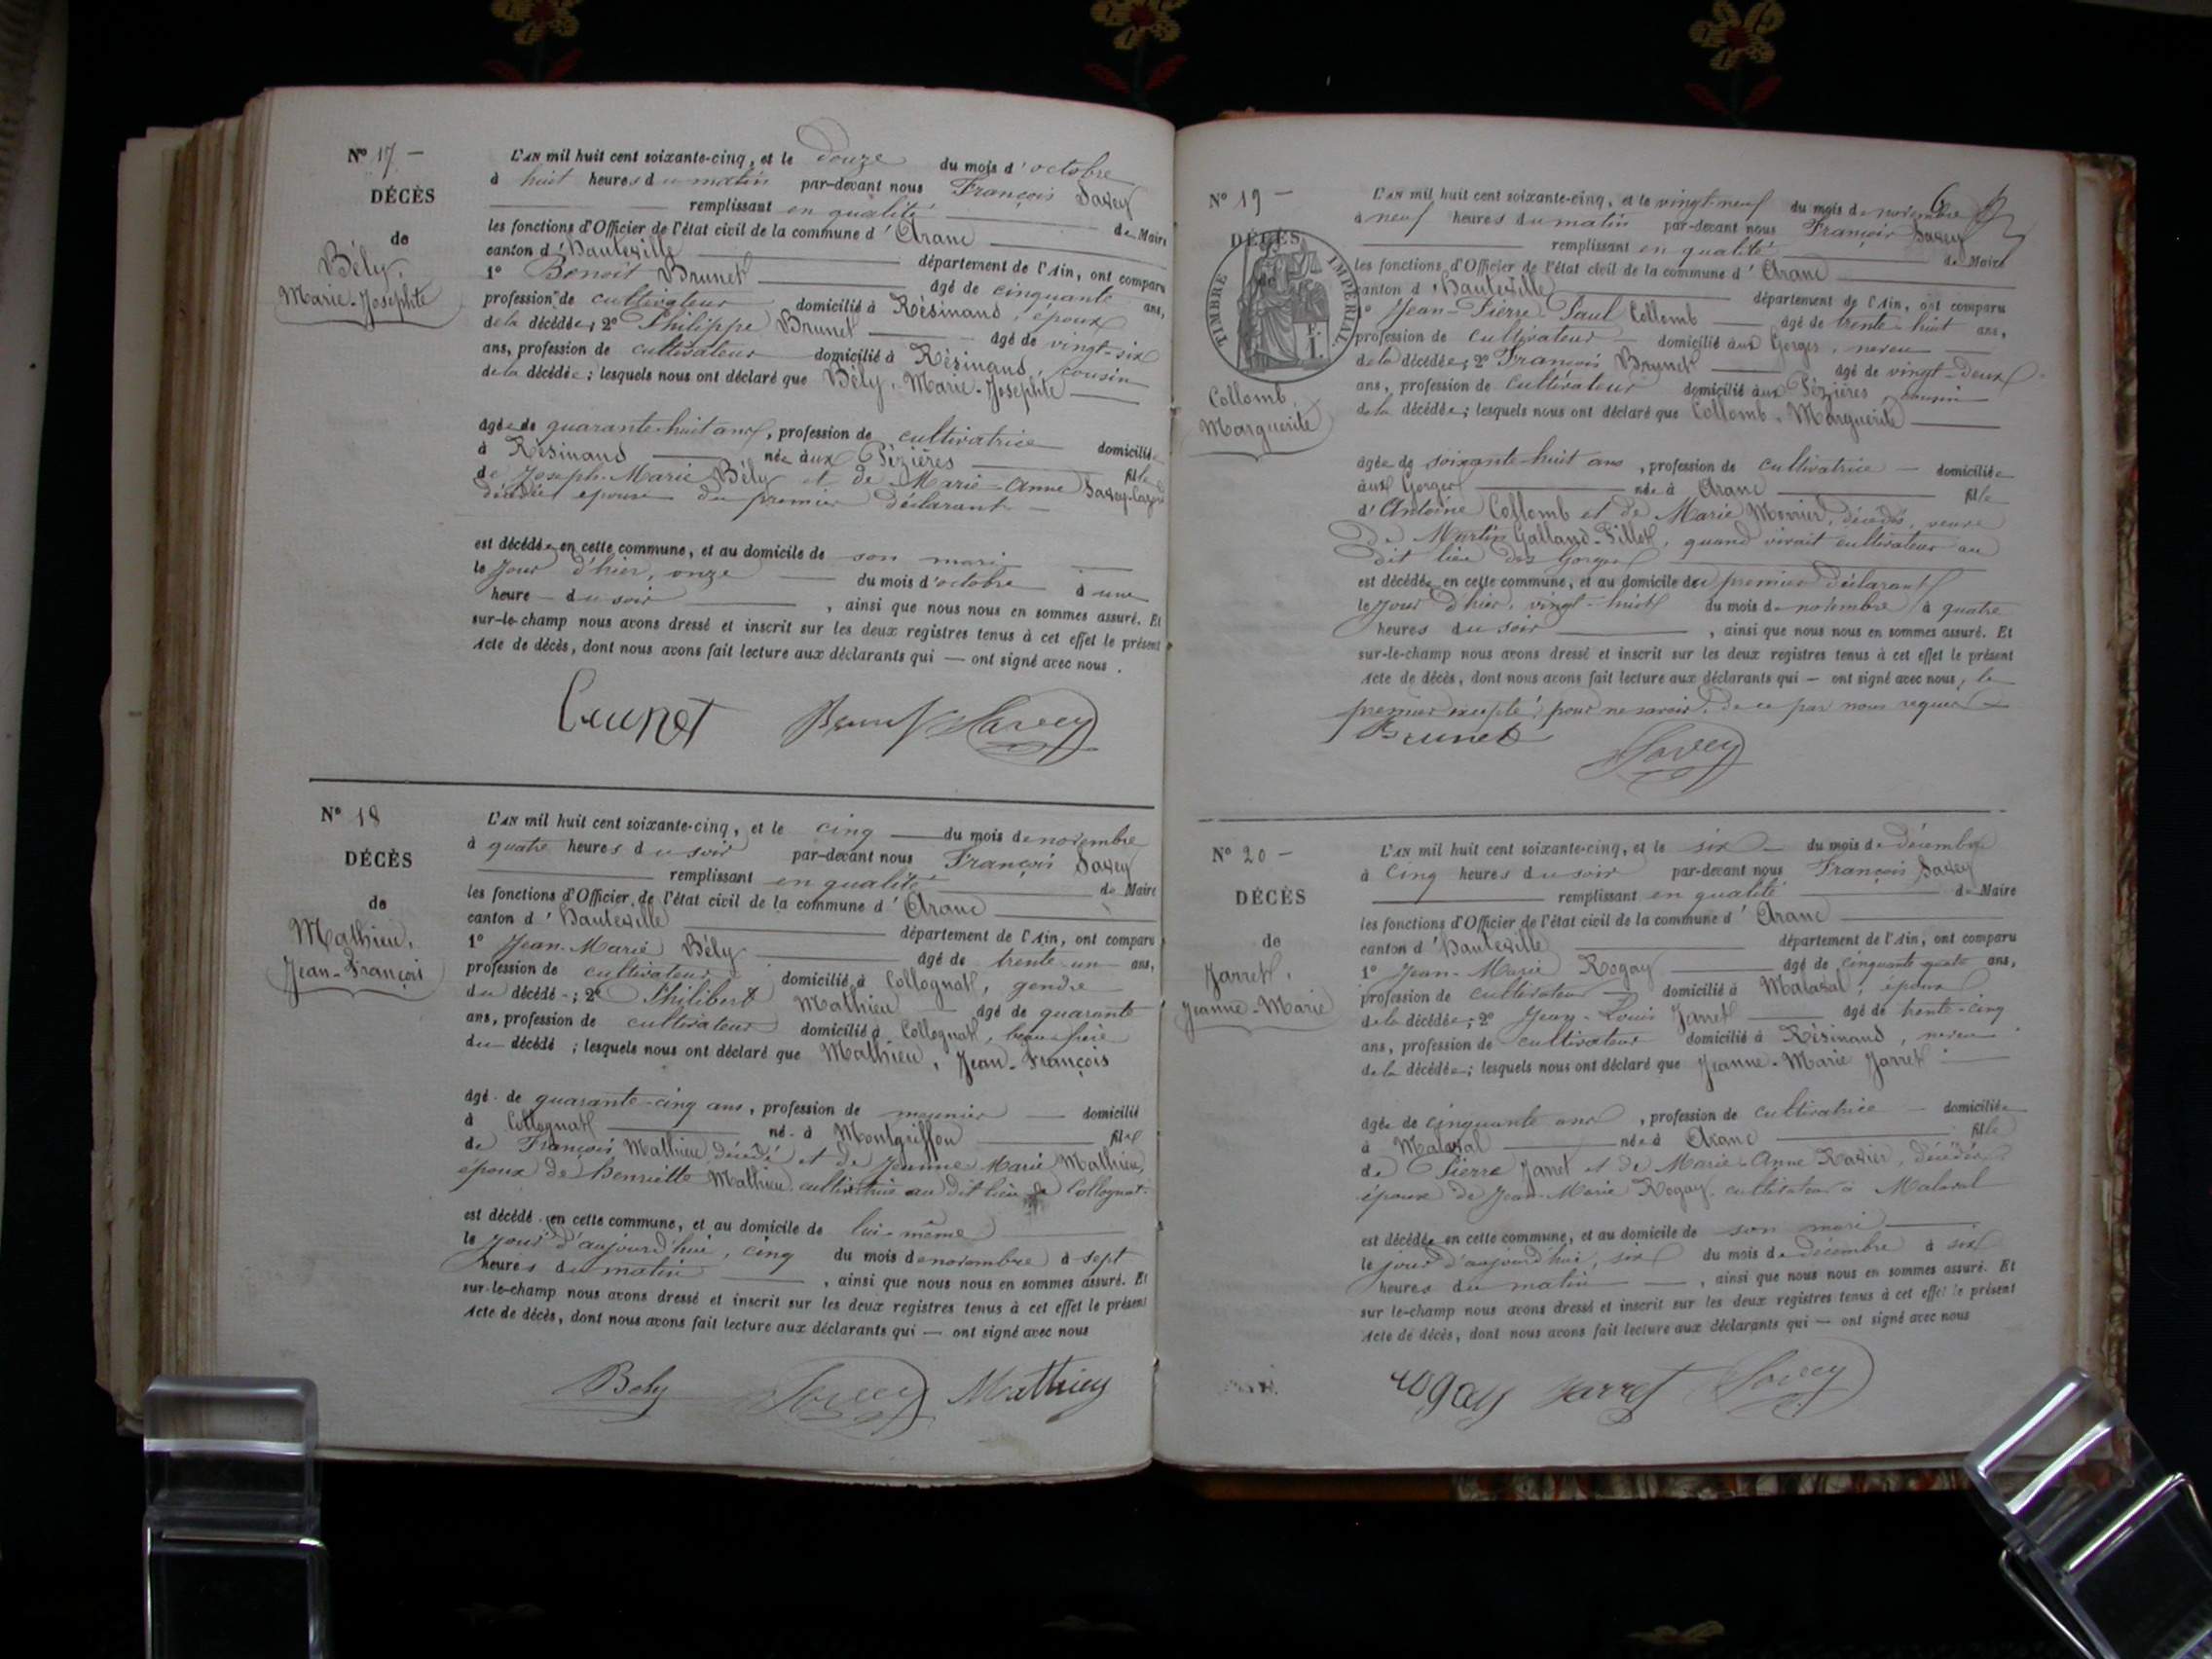 N° 17 —
DÉCÈS
de
Bély,
Marie-Josephte
L'AN mil huit cent soixante-cinq, et le douze du mois d'octobre
à huit heures du matin par-devant nous François Savey
remplissant en qualité de Maire
les fonctions d'Officier de l'état civil de la commune d'Aranc
canton d'Hauteville département de l'Ain, ont comparu
1° Benoit Brunet âgé de cinquante ans,
profession de cultivateur domicilié à Résinand, époux
de la décédée; 2° Philippe Brunet âgé de vingt-six
ans, profession de cultivateur domicilié à Résinand, cousin
de la décédée; lesquels nous ont déclaré que Bély, Marie-Josephte
âgée de quarante-huit ans, profession de cultivatrice domiciliée
à Résinand née aux Pézières fille
de Joseph-Marie Bély et de Marie-Anne Savey
décédés épouse du premier déclarant —
est décédée en cette commune, et au domicile de son mari
le jour d'hier, onze du mois d'octobre à une
heure du soir, ainsi que nous nous en sommes assuré. Et
sur-le-champ nous avons dressé et inscrit sur les deux registres tenus à cet effet le présent
Acte de décès, dont nous avons fait lecture aux déclarants qui — ont signé avec nous.
Brunet Brunet Savey
N° 18
DÉCÈS
de
Mathieu,
Jean-François
L'AN mil huit cent soixante-cinq, et le cinq du mois de novembre
à quatre heures du soir par-devant nous François Savey
remplissant en qualité de Maire
les fonctions d'Officier de l'état civil de la commune d'Aranc
canton d'Hauteville département de l'Ain, ont comparu
1° Jean-Marie Bély âgé de trente-un ans,
profession de cultivateur domicilié à Collognat, gendre
du décédé; 2° Philibert Mathieu âgé de quarante
ans, profession de cultivateur domicilié à Collognat, beau-frère
du décédé; lesquels nous ont déclaré que Mathieu, Jean-François
âgé de quarante-cinq ans, profession de meunier domicilié
à Collognat né à Montgriffon fils
de François Mathieu décédé et de Jeanne Marie Mathieu,
époux de Henriette Mathieu cultivatrice au dit lieu de Collognat.
est décédé en cette commune, et au domicile de lui-même
le jour d'aujourd'hui, cinq du mois de novembre à sept
heures du matin, ainsi que nous nous en sommes assuré. Et
sur-le-champ nous avons dressé et inscrit sur les deux registres tenus à cet effet le présent
Acte de décès, dont nous avons fait lecture aux déclarants qui — ont signé avec nous
Bely Savey Mathieu
N° 19 —
DÉCÈS
TIMBRE IMPÉRIAL
Collomb,
Marguerite
L'AN mil huit cent soixante-cinq, et le vingt-neuf du mois de novembre
à neuf heures du matin par-devant nous François Savey
remplissant en qualité de Maire
les fonctions d'Officier de l'état civil de la commune d'Aranc
canton d'Hauteville département de l'Ain, ont comparu
1° Jean-Pierre-Paul Collomb âgé de trente-huit ans,
profession de cultivateur domicilié aux Gorges, neveu
de la décédée; 2° François Brunet âgé de vingt-deux
ans, profession de cultivateur domicilié aux Pézières, cousin
de la décédée; lesquels nous ont déclaré que Collomb, Marguerite
âgée de soixante-huit ans, profession de cultivatrice — domiciliée
aux Gorges née à Aranc fille
d'Antoine Collomb et de Marie Monnier, décédés, veuve
De Martin Galland-Pillet, quand vivait cultivateur au
dit lieu des Gorges
est décédée en cette commune, et au domicile du premier déclarant
le jour d'hier, vingt-huit du mois de novembre à quatre
heures du soir, ainsi que nous nous en sommes assuré. Et
sur-le-champ nous avons dressé et inscrit sur les deux registres tenus à cet effet le présent
Acte de décès, dont nous avons fait lecture aux déclarants qui — ont signé avec nous, le
premier excepté, pour ne savoir, de ce par nous requis
Brunet Savey
N° 20 —
DÉCÈS
de
Jarret,
Jeanne-Marie
L'AN mil huit cent soixante-cinq, et le six — du mois de décembre
à cinq heures du soir par-devant nous François Savey
remplissant en qualité de Maire
les fonctions d'Officier de l'état civil de la commune d'Aranc
canton d'Hauteville département de l'Ain, ont comparu
1° Jean-Marie Rogay âgé de cinquante-quatre ans,
profession de cultivateur domicilié à Malaval, époux
de la décédée; 2° Jean-Louis Jarret âgé de trente-cinq
ans, profession de cultivateur domicilié à Résinand, neveu
de la décédée; lesquels nous ont déclaré que Jeanne-Marie Jarret
âgée de cinquante ans, profession de cultivatrice — domiciliée
à Malaval née à Aranc fille
de Pierre Jarret et de Marie-Anne Ravier, décédés,
épouse de Jean-Marie Rogay, cultivateur à Malaval
est décédée en cette commune, et au domicile de son mari
le jour d'aujourd'hui, six du mois de décembre à six
heures du matin —, ainsi que nous nous en sommes assuré. Et
sur le-champ nous avons dressé et inscrit sur les deux registres tenus à cet effet le présent
Acte de décès, dont nous avons fait lecture aux déclarants qui — ont signé avec nous
rogay jarret Savey